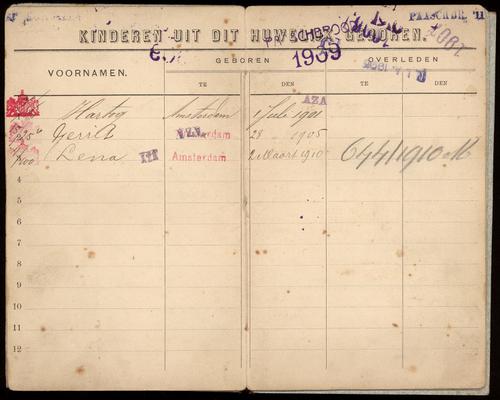 PAASCHBR. '11
KINDEREN UIT DIT HUWELIJK GEBOREN.
PAASCHBROOD
1907
1909
VOORNAMEN.
GEBOREN
OVERLEDEN
TE
DEN
TE
DEN
AZA
Hartog Amsterdam 1 Juli 1901
Gerrit Amsterdam 28 1905
Lena III Amsterdam 2 Maart 1910 644/1910 M
4
5
6
7
8
9
10
11
12